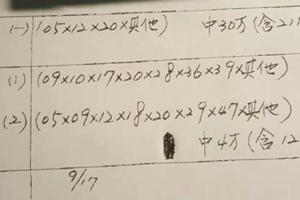 (一) (05×12×20×其他) 中30万(含211
(1) (09×10×17×20×28×36×39×其他)
(2) (05×09×12×18×20×29×47×其他)
中4万(含12
9/17